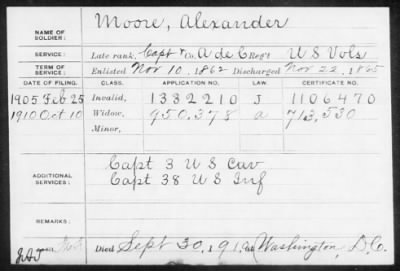 Moore, Alexander
NAME OF SOLDIER:
SERVICE: Late rank, Capt & Co. A de C Reg't U S Vols
TERM OF SERVICE: Enlisted Nov 10, 1862 Discharged Nov 22, 1865
DATE OF FILING. CLASS. APPLICATION NO. LAW. CERTIFICATE NO.
1905 Feb 25 Invalid, 1332210 J 1106470
1910 Oct 10 Widow, 950.378 a 713,530
Minor,
Capt 3 U S Cav
ADDITIONAL SERVICES: Capt 38 U S Inf
REMARKS:
Died Sept 30, 191, at Washington, D.C.